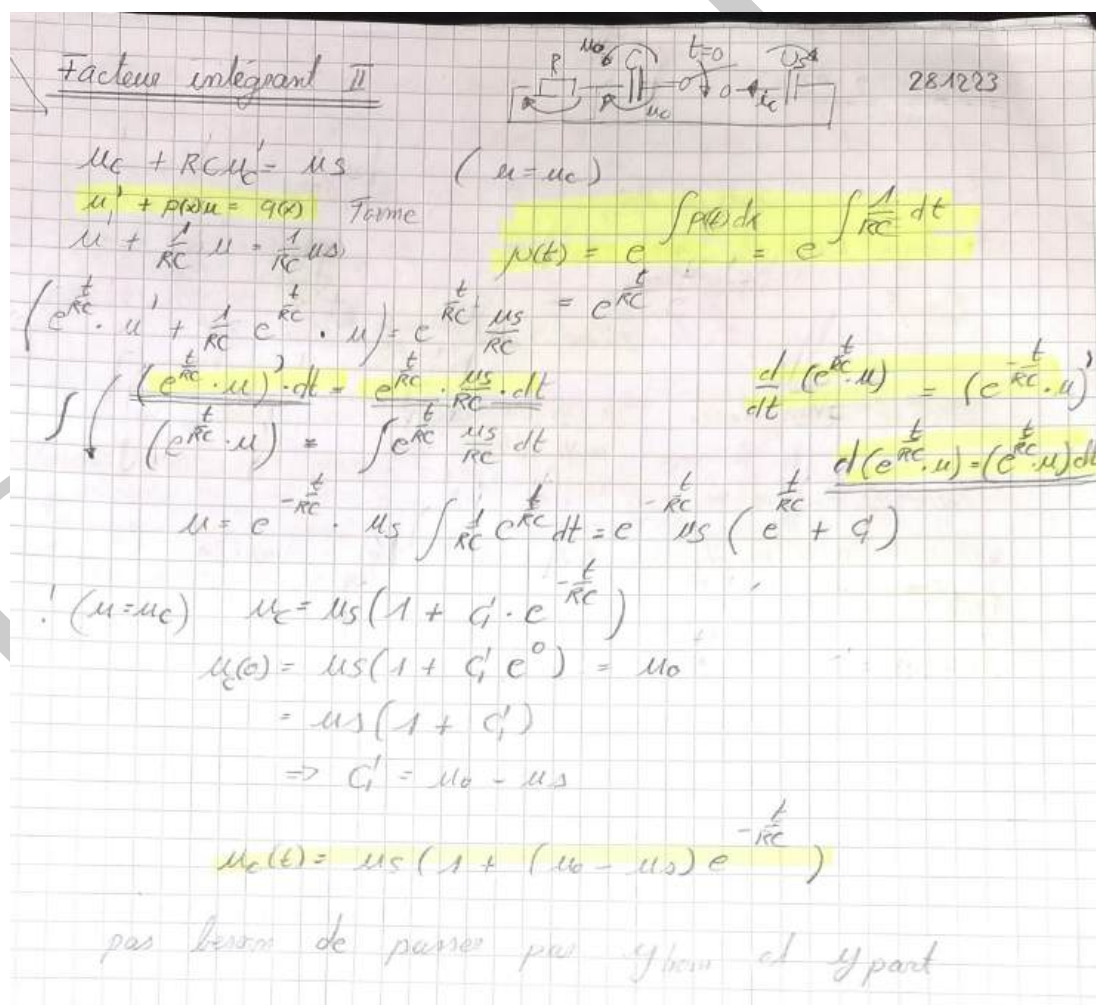 Facteur intégrant II
R u0 C t=0 Us 281223
uc ic
uc + RCuc' = us (u = uc)
u' + p(x)u = q(x) Forme μ(t) = e^∫p(t)dx = e^∫1/RC dt
u' + 1/RC u = 1/RC us
(e^t/RC · u' + 1/RC e^t/RC · u) = e^t/RC us/RC = e^t/RC
∫( (e^t/RC · u)' · dt = e^t/RC · us/RC · dt d/dt (e^t/RC · u) = (e^t/RC · u)'
(e^t/RC · u) = ∫e^t/RC us/RC dt d(e^t/RC · u) = (e^t/RC · u)'dt
u = e^-t/RC · us ∫ 1/RC e^t/RC dt = e^-t/RC us (e^t/RC + C1)
! (u=uc) uc = us(1 + C1 · e^-t/RC)
uc(0) = us(1 + C1 e^0) = u0
= us(1 + C1)
=> C1 = u0 - us
uc(t) = us(1 + (u0 - us) e^-t/RC)
pas besoin de passer par yhom et ypart